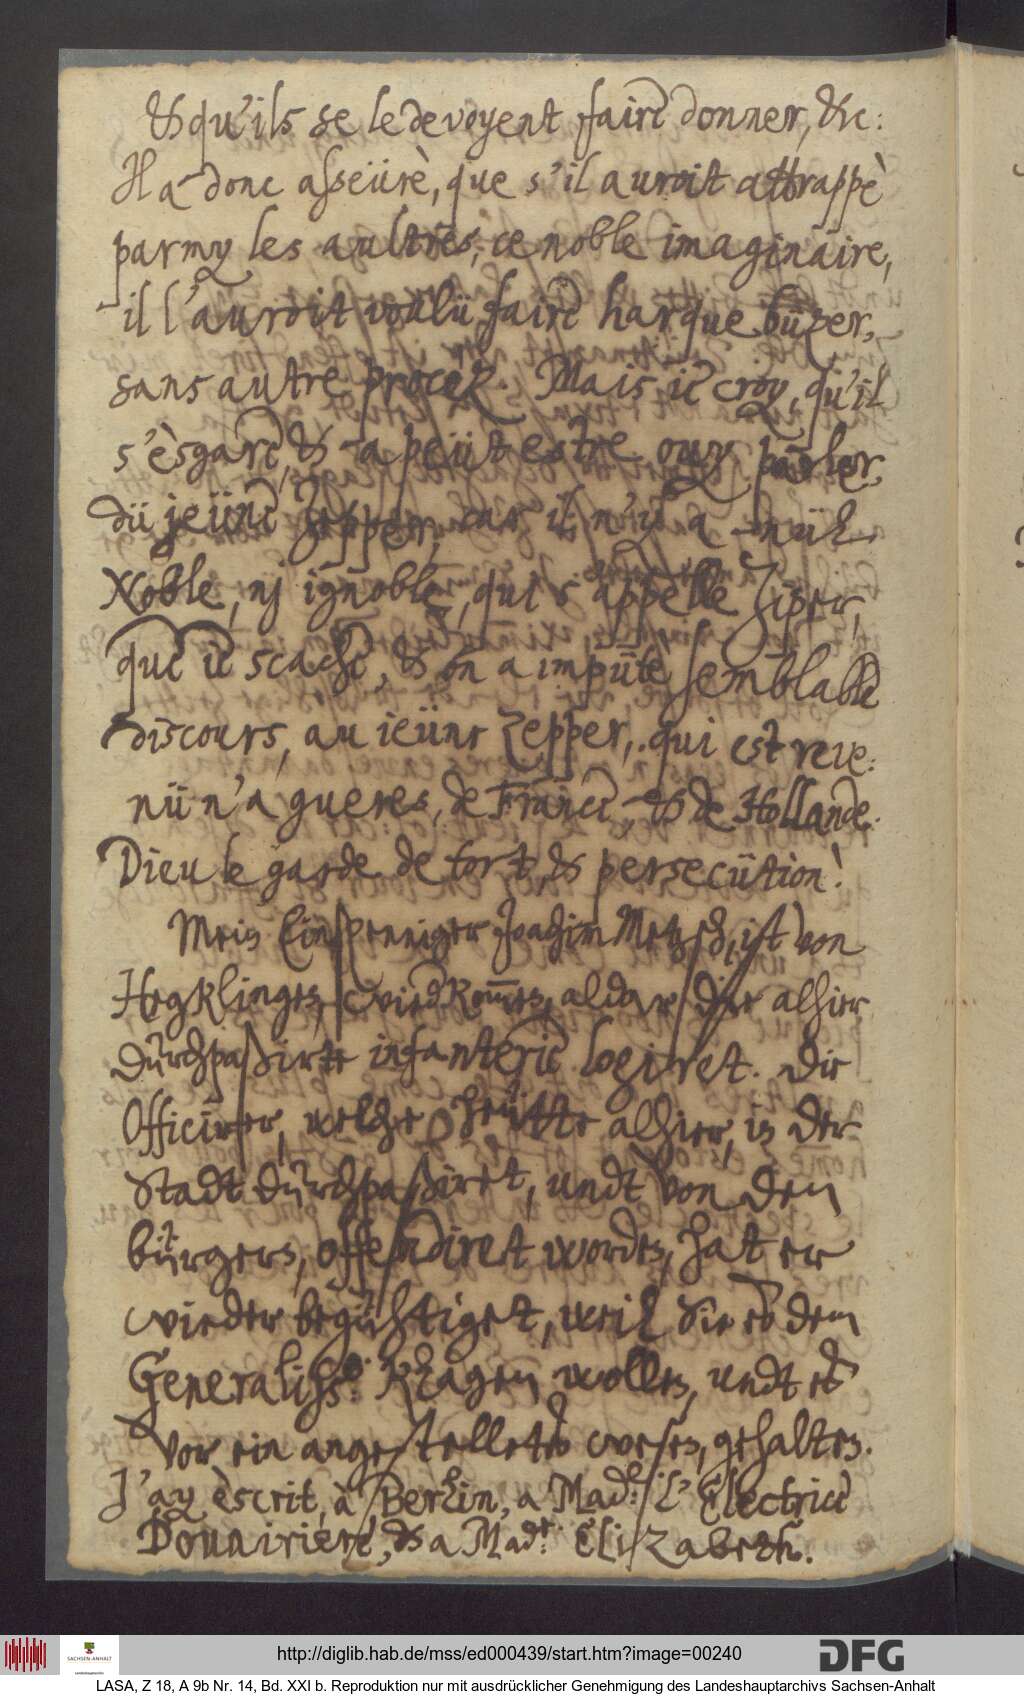 & qu'ils se le devoyent faire donner, &c:
Il a donc asseürè, que s'il auroit attrappè
parmy les aultres, ce noble imaginaire,
il l'auroit voulü faire harquebüzer,
sans autre procez. Mais ie croy, qu'il
s'èsgare, & a peüt estre ouy parler,
dü jeüne Zepper, car il n'y a nül
Noble, nj ignoble, qui s'appelle Ziper,
que ie scache, & on a impütè semblable
discours, au ieüne Zepper, qui est reve:
nü n'a gueres, de France, & de Hollande.
Dieu le garde de tort, & persecütion!
Mein Einspenniger Joachim Metzsch, ist von
Hegklingen, wiedkom̅en, aldar die alhier
dürchpaßirte infanterie logiret. Die
Officirer, welche heütte alhier, in der
Stadt dürchpaßiret, undt von den
bürgern, offendiret worden, hat er
wieder begühtiget, weil Sie es dem
Generaliss.o klagen wollen, undt es
vor ein angestelletes wesen, gehalten.
J'ay èscrit, à Berlin, a Mad.e L'Electrice
Douairiere, & a Mad.e Elizabeth.
http://diglib.hab.de/mss/ed000439/start.htm?image=00240
DFG
SACHSEN-ANHALT
LASA, Z 18, A 9b Nr. 14, Bd. XXI b. Reproduktion nur mit ausdrücklicher Genehmigung des Landeshauptarchivs Sachsen-Anhalt